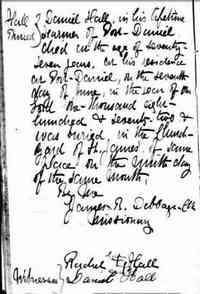 Hall } Daniel Hall, in his lifetime
Farmer of Port-Daniel
died in the age of seventy-
seven years, at his residence
at Port-Daniel, on the seventh
day of June, in the year of our
Lord one thousand eight-
hundred & seventy-two &
was buried, in the
of same
place on the ninth day
of the same month,
By me
James R.
Missionary
Hall
Witnesses } Daniel Hall